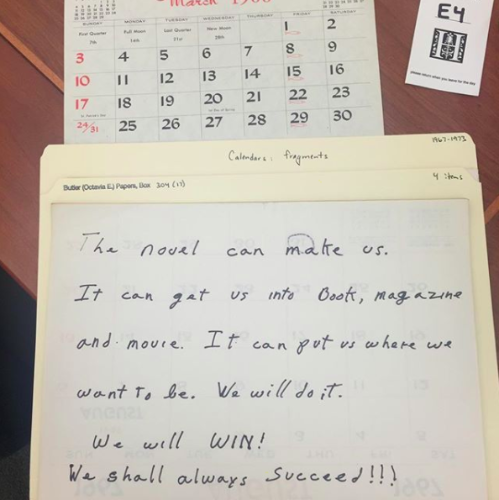 March
SUNDAY MONDAY TUESDAY WEDNESDAY THURSDAY FRIDAY SATURDAY
First Quarter 7th Full Moon 14th Last Quarter 21st New Moon 28th 1 2
3 4 5 6 7 8 9
10 11 12 13 14 15 16
17 18 19 20 21 22 23
24/31 25 26 27 28 29 30
E4
1967-1973
Calendars: fragments
Butler (Octavia E.) Papers, Box 304 (17)
4 items
The novel can make us.
It can get us into Book, magazine
and movie. It can put us where we
want To be. We will do it.
We will WIN!
We shall always Succeed!!!
AUGUST
1967